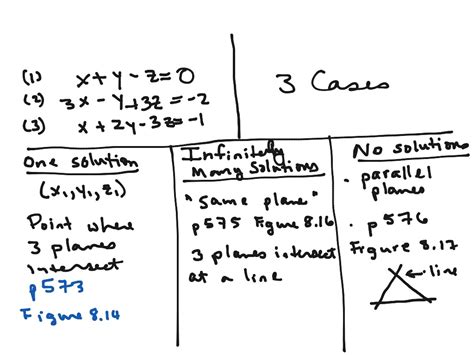 (1) x+y-z=0
(2) 3x-y+3z=-2
(3) x+2y-3z=-1
3 Cases
One solution
(x₁,y₁,z₁)
Point where
3 planes
intersect
p573
Figure 8.14
Infinitely
Many Solutions
"same plane"
p575 Figure 8.16
3 planes intersect
at a line
No solutions
· parallel
planes
· p576
Figure 8.17
←line